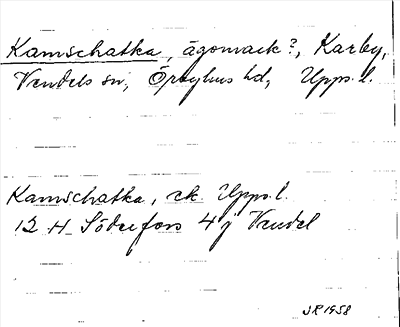 Kamschatka, ägomark?, Karby,
Vendels sn, Örbyhus hd, Upps. l.
Kamschatka, ek. Upps. l.
12 H Söderfors 4 j Vendel
JR 1958